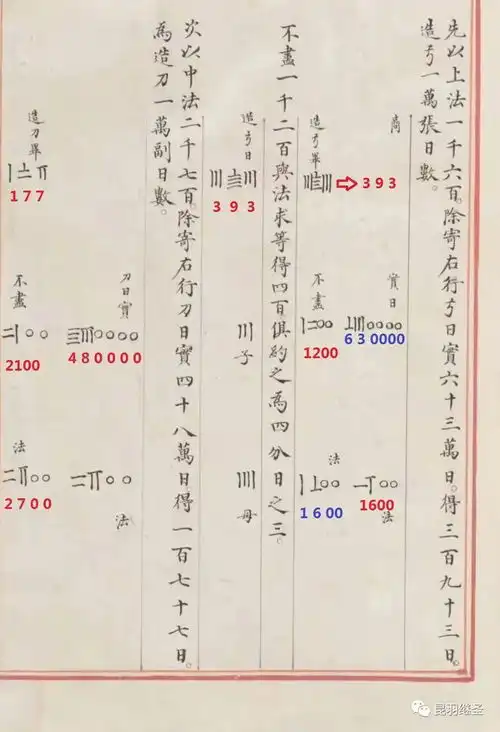 先以上法一千六百。除寄右行弓日實六十三萬日。得三百九十三日。
造弓一萬張日數。
商
393
實日
630000
1600
法
造弓畢
不盡
1200
法
1600
不盡一千二百與法求等得四百俱約之為四分日之三。
造弓日
393
子
母
次以中法二千七百。除寄右行刀日實四十八萬日得一百七十七日。
為造刀一萬副日數。
刀日實
480000
法
造刀畢
177
不盡
2100
法
2700
昆羽继圣